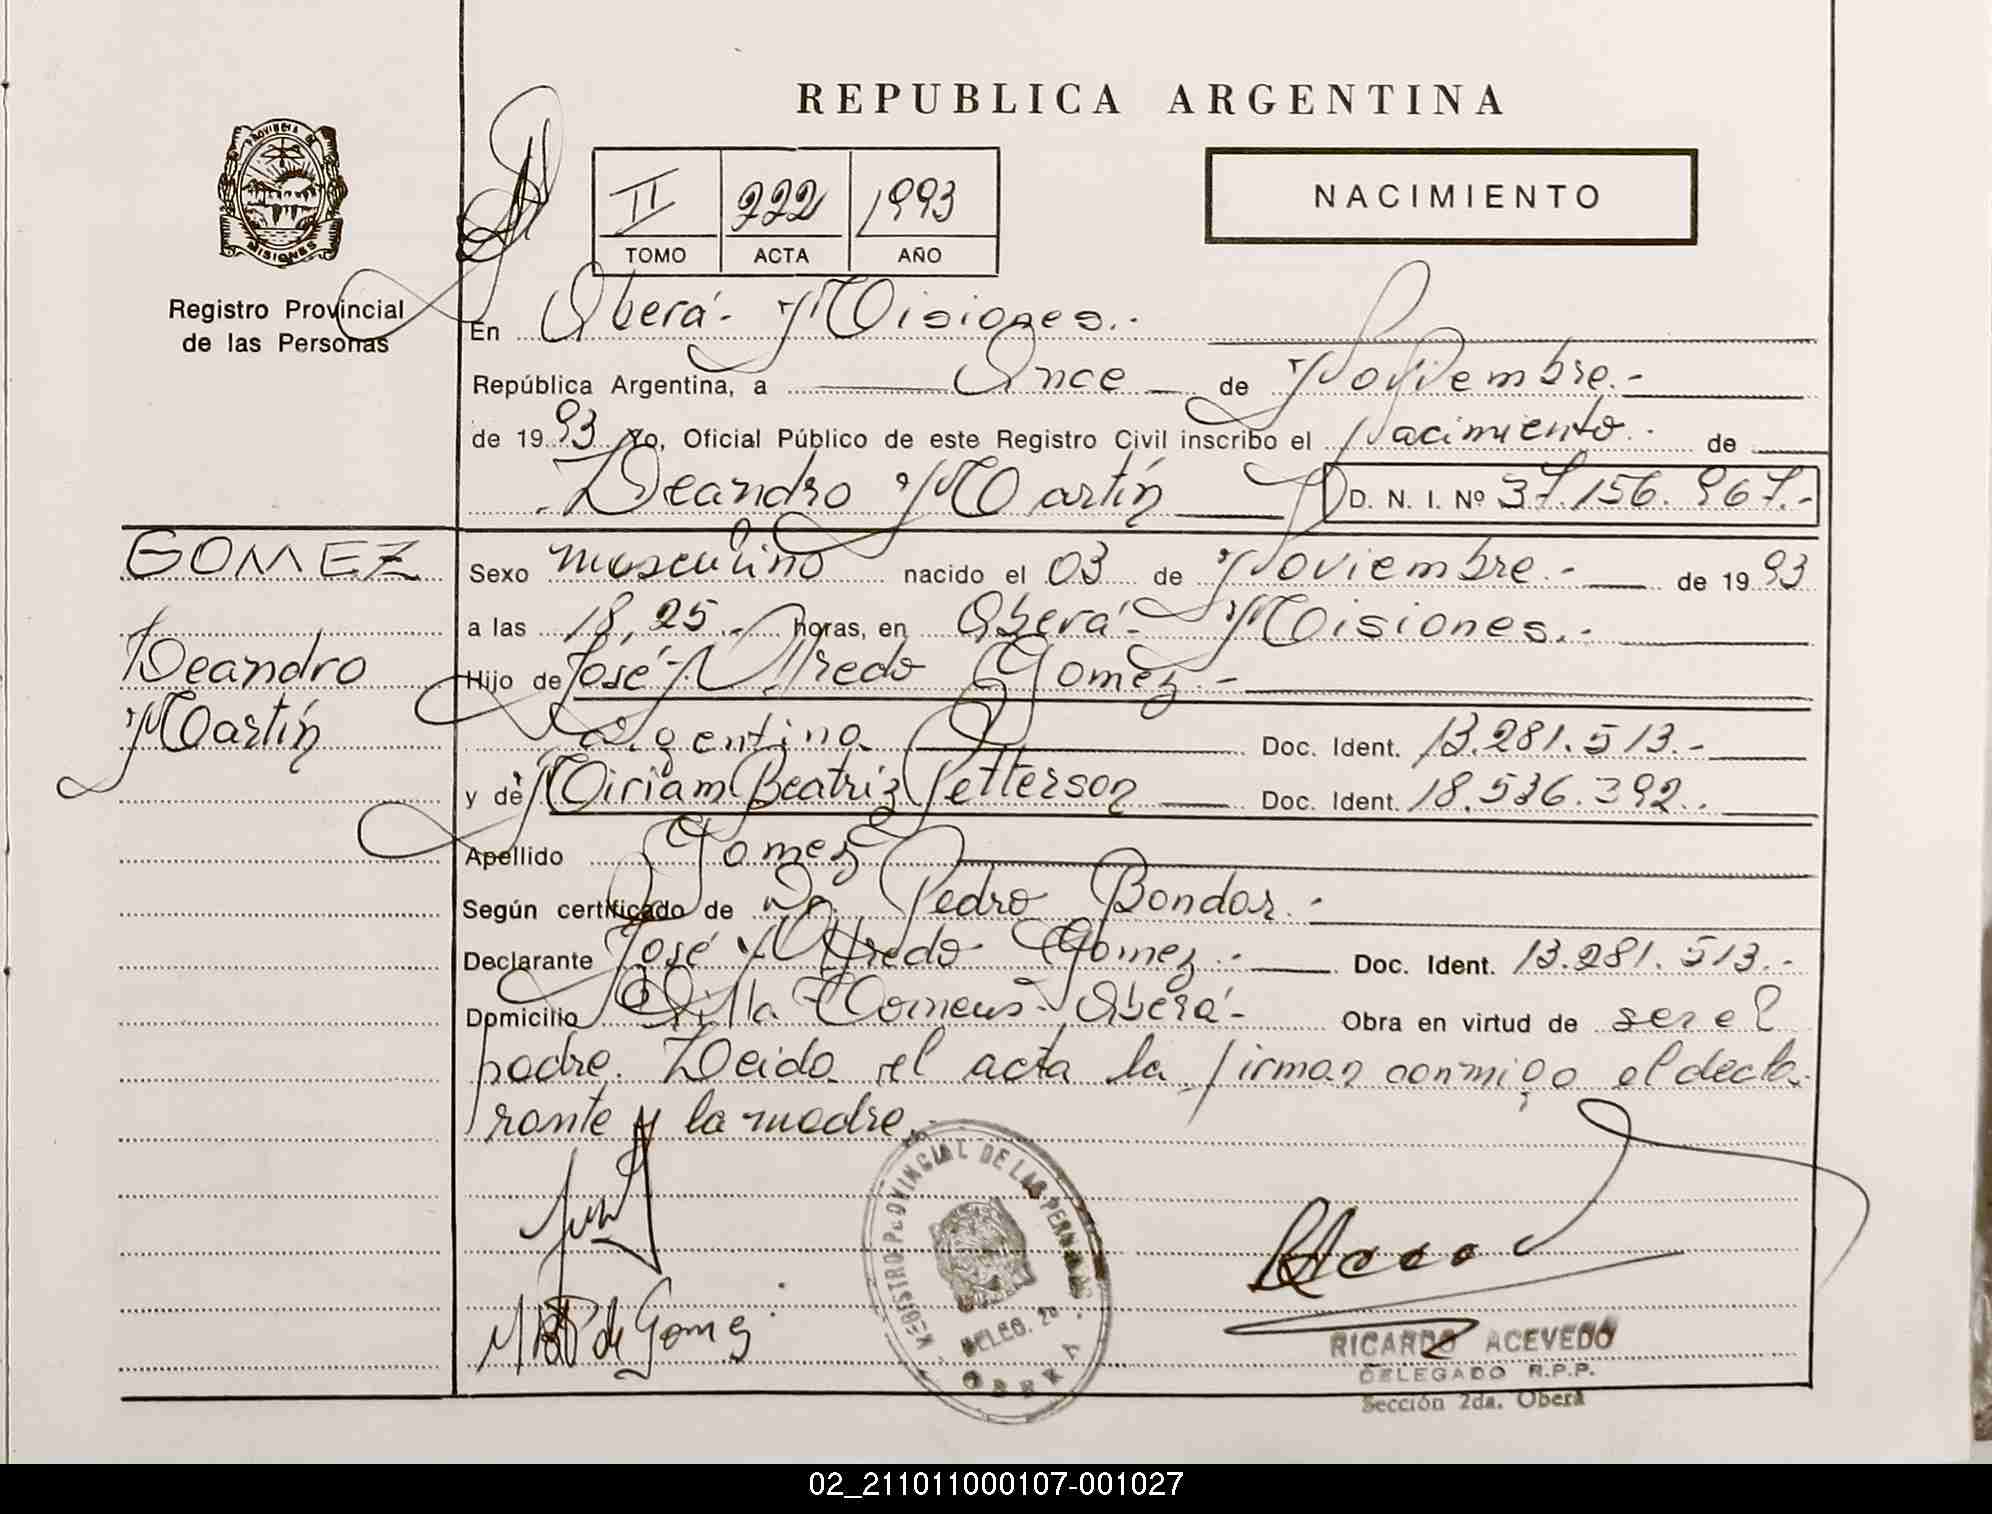 REPUBLICA ARGENTINA
PROVINCIA DE
MISIONES
Registro Provincial
de las Personas
II 222 1993
TOMO ACTA AÑO
NACIMIENTO
En Oberá - Misiones.-
República Argentina, a Once de Noviembre.-
de 1993 Yo, Oficial Público de este Registro Civil inscribo el Nacimiento de
Leandro Martín D. N. I. Nº 37.156.967.-
GOMEZ
Leandro
Martín
Sexo masculino nacido el 03 de Noviembre.- de 1993
a las 18,25 horas, en Oberá - Misiones.-
Hijo de José Alfredo Gomez.-
argentino Doc. Ident. 13.281.513.-
y de Miriam Beatriz Petterson Doc. Ident. 18.536.392.
Apellido Gomez
Según certificado de Dr. Pedro Bondar.-
Declarante José Alfredo Gomez.- Doc. Ident. 13.281.513.-
Domicilio Villa Oberá- Obra en virtud de ser el
padre. Leida el acta la firman conmigo el decla-
rante y la madre.
M B P de Gomez
REGISTRO PROVINCIAL DE LAS PERSONAS
DELEG. 2ª
OBERA
RICARDO ACEVEDO
DELEGADO R.P.P.
Sección 2da. Oberá
02_211011000107-001027